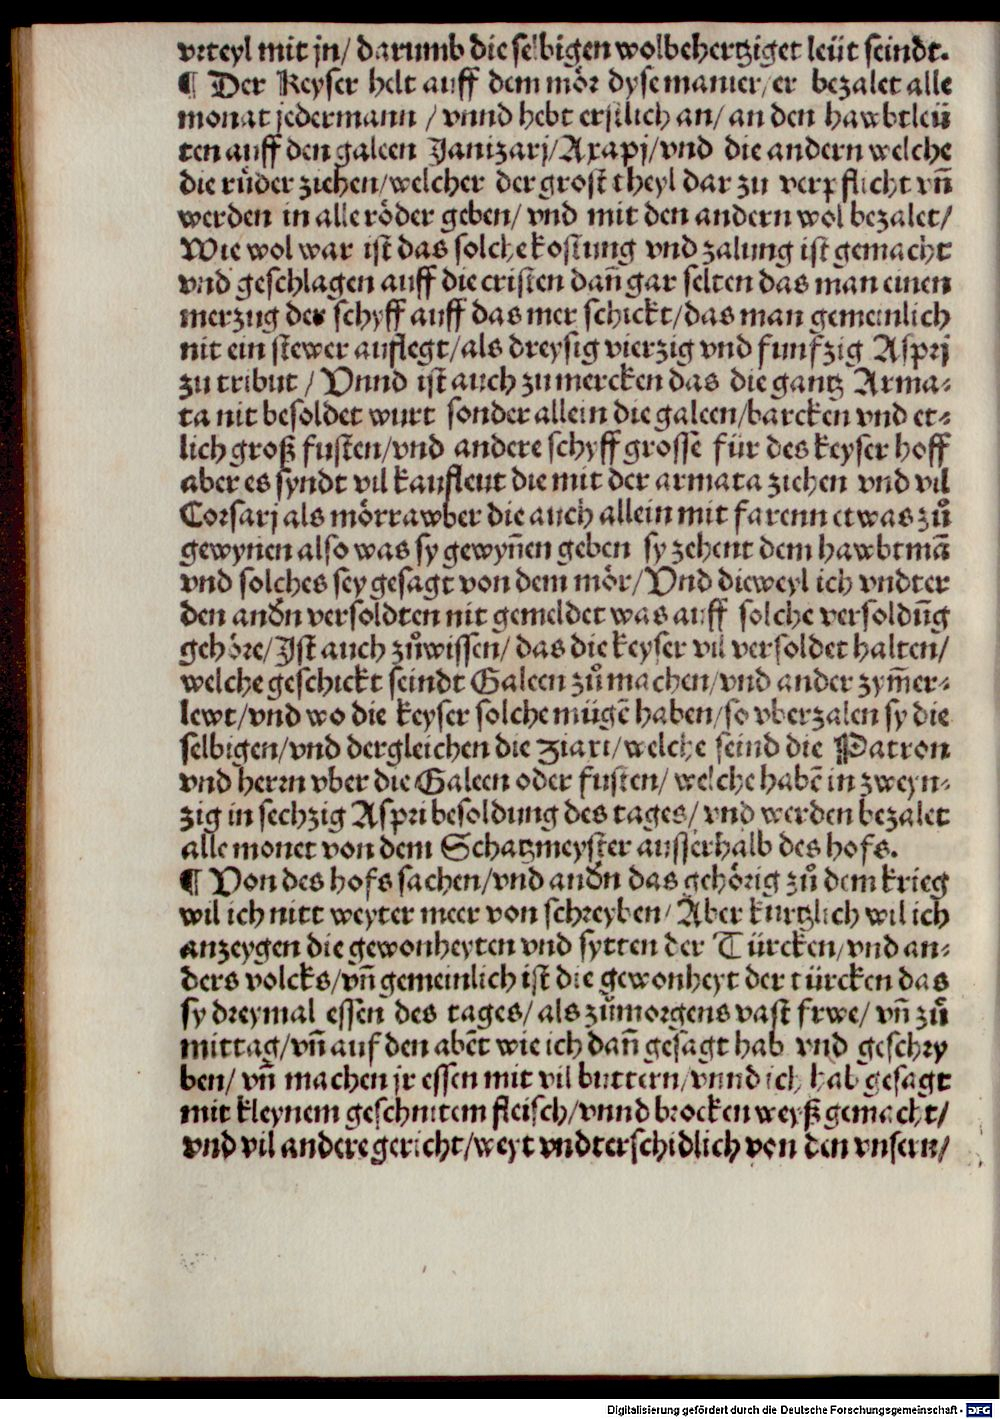 vrteyl mit jn/ darumb die selbigen wolbehertziget leüt seindt.
¶ Der Keyser helt auff dem mör dyse manier/ er bezalet alle
monat jedermann / vnnd hebt erstlich an/ an den hawbtleü
ten auff den galeen Janizarj/Axapj/vnd die andern welche
die rüder ziehen/welcher der grost theyl dar zu verpflicht vñ
werden in alle röder geben/ vnd mit den andern wol bezalet/
Wie wol war ist das solche kostung vnd zalung ist gemacht
vnd geschlagen auff die cristen dañ gar selten das man einen
merzug der schyff auff das mer schickt/das man gemeinlich
nit ein stewer auflegt/als dreysig vierzig vnd funfzig Asprj
zu tribut / Vnnd ist auch zu mercken das die gantz Arma⸗
ta nit besoldet wurt sonder allein die galeen/barcken vnd et⸗
lich groß fusten/vnd andere schyff grosse für des keyser hoff
aber es syndt vil kaufleut die mit der armata ziehen vnd vil
Corsarj als mörrawber die auch allein mit farenn etwas zů
gewynen also was sy gewyñen geben sy zehent dem hawbtmã
vnd solches sey gesagt von dem mör/Vnd dieweyl ich vndter
den andñ versoldten nit gemeldet was auff solche versoldũg
gehöre/Ist auch zůwissen/ das die keyser vil versoldet halten/
welche geschickt seindt Galeen zů machen/vnd ander zym̃er⸗
lewt/vnd wo die keyser solche mügẽ haben/so vberzalen sy die
selbigen/vnd dergleichen die Ziari/welche seind die Patron
vnd herrn vber die Galeen oder fusten/ welche habẽ in zweyn⸗
zig in sechzig Aspri besoldung des tages/ vnd werden bezalet
alle monet von dem Schatzmeyster ausserhalb des hofs.
¶ Von des hofs sachen/vnd andñ das gehörig zů dem krieg
wil ich nitt weyter meer von schreyben/ Aber kurtzlich wil ich
anzeygen die gewonheyten vnd sytten der Türcken/vnd an⸗
ders volcks/vñ gemeinlich ist die gewonheyt der türcken das
sy dreymal essen des tages/ als zůmorgens vast frwe/ vñ zů
mittag/vñ auf den abẽt wie ich dañ gesagt hab vnd geschry
ben/ vñ machen jr essen mit vil buttern/vnnd ich hab gesagt
mit kleynem geschnitem fleisch/vnnd brocken weyß gemacht/
vnd vil andere gericht/weyt vndterschidlich von den vnsern/
Digitalisierung gefördert durch die Deutsche Forschungsgemeinschaft - DFG